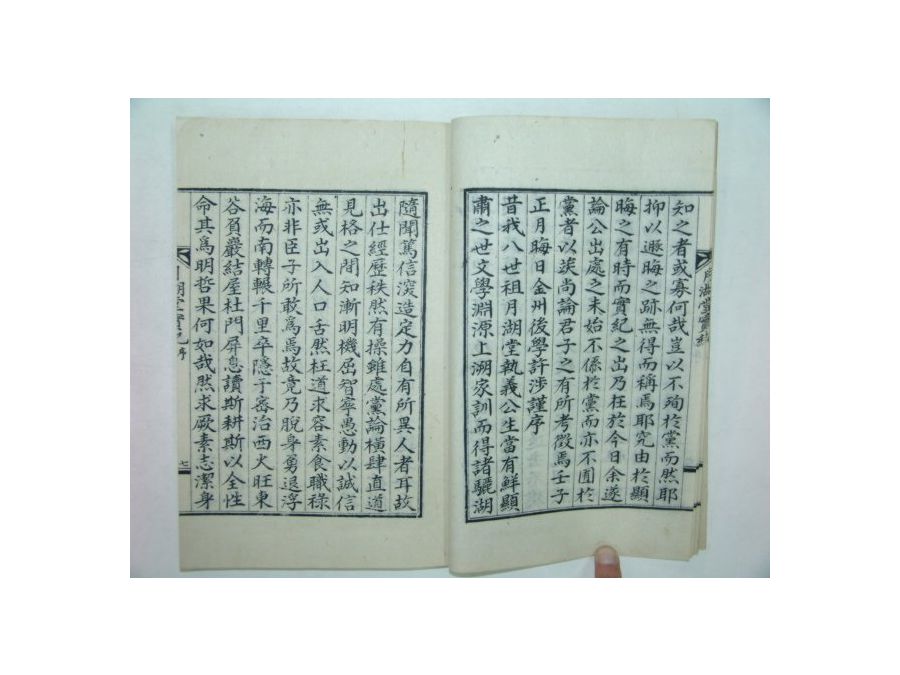 知之者或寡何哉豈以不殉於黨而然耶
抑以遯晦之跡無得而稱焉耶究由於顯
晦之有時而實紀之出乃在於今日余遂
論公出處之未始不係於黨而亦不囿於
黨者以俟尚論君子之有所考徵焉壬子
正月晦日金州後學許涉謹序
昔我八世祖月湖堂執義公生當有鮮顯
肅之世文學淵源上溯家訓而得諸驪湖
月湖堂實紀
隨聞篤信深造定力自有所異人者耳故
出仕經歷秩然有操雖處黨論橫肆直道
見格之間知漸明機屈智寧愚動以誠信
無或出入人口舌然枉道求容素食職祿
亦非臣子所敢爲焉故竟乃脫身勇退浮
海而南轉輾千里卒隱于富治西火旺東
谷貧巖結屋杜門屏息讀斯耕斯以全性
命其爲明哲果何如哉然求厥素志潔身
月湖堂實紀序
七